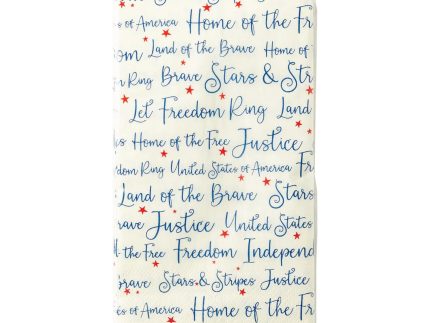 es of America Home of the Fr
dom Land of the Brave Home of
m Ring Brave Stars & Str
Let Freedom Ring Land
es Home of the Free Justice
edom Ring United States of America Fr
Land of the Brave Stars
Brave Justice United States
the Free Freedom Independ
brave Stars & Stripes Justice
es of America Home of the Fr